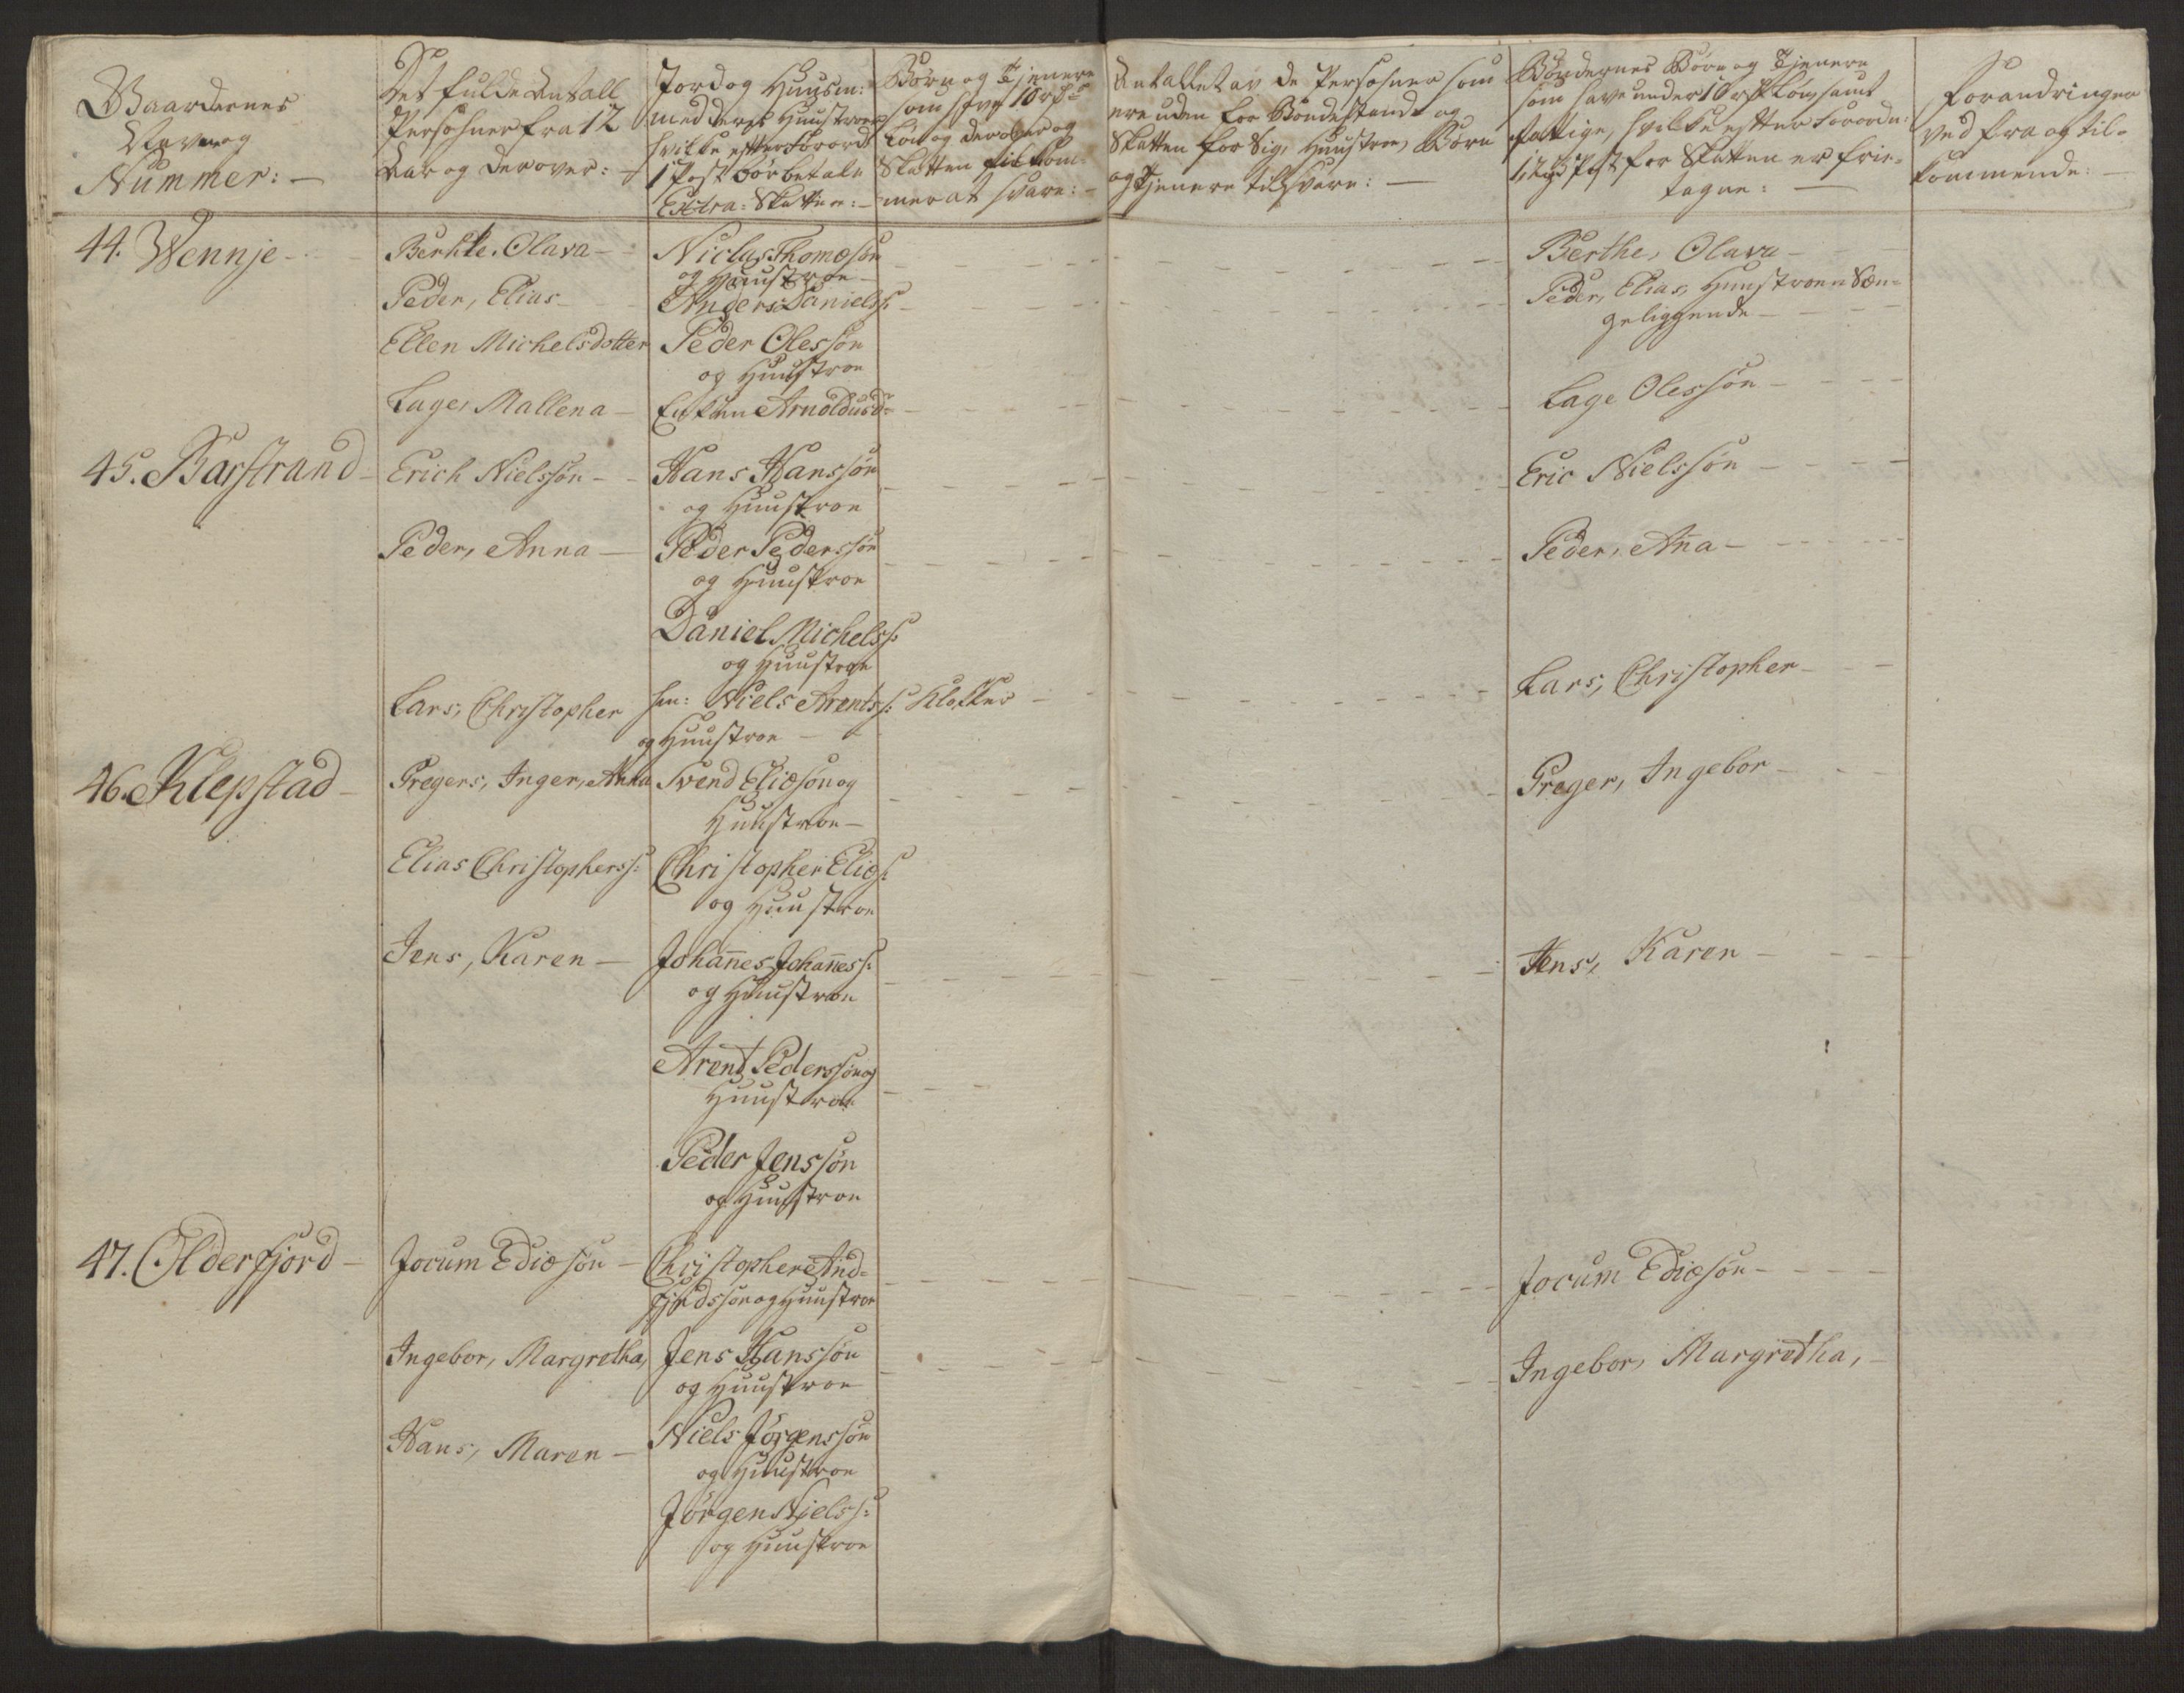 Gaardernes
Navn og
Nummer: —
Det fulde Antall
Persohner fra 12
Aar og derover: —
Jord og Huusm:
med deres Huustroer
hvilke efter Forord:
1 Post bør betale
Extra-Skatten: —
Børn og Tjenere
som have 10 rd
Løn og derover og
Skatten tilkom-
mer at svare: —
Antallet av de Persohner som
ere uden for Bondestand og
Skatten for Sig, Huustroe, Børn
og Tjenere tilsvare: —
Bøndernes Børn og Tjenere
som have under 10 rd Løn, samt
fattige, hvilke efter Forordn:
Post for Skatten er frie-
tagne: —
Forandringer
ved fra og til-
kommende: —
44. Wennje —
Berthe, Olava —
Niclas Thomesøn
og Huustroe —
Berthe, Olava —
Peder, Elias —
Anders Daniels:
Peder, Elias, Huustroen Sen-
geliggende —
Ellen Michelsdotter
Peder Olessøn
og Huustroe
Lage, Mallena —
Enken Arnoldusd:
Lage Olessøn —
45. Barstrand —
Erich Nielssøn —
Hans Hanssøn
og Huustroe
Eric Nielssøn —
Peder, Anna —
Peder Pederssøn
og Huustroe
Peder, Anna —
Daniel Michelss:
og Huustroe
Lars, Christopher
Niels Arents: Klokker —
og Huustroe —
Lars, Christopher —
46. Klepstad —
Gregers, Inger, Anna
Svend Eliesøn og
Huustroe —
Greger, Ingebor —
Elias Christopherss:
Christopher Elies:
og Huustroe
Jens, Karen —
Johannes Johannes:
og Huustroe
Jens, Karen —
Arent Pederssøn og
Huustroe
Peder Jenssøn
og Huustroe
47. Olderfjord —
Jocum Ediesøn —
Christopher And-
findssøn og Huustroe
Jocum Ediesøn —
Ingebor, Margretha,
Jens Hanssøn
og Huustroe
Ingebor, Margretha, —
Hans, Maren —
Niels Jørgenssøn
og Huustroe
Jørgen Nielss:
og Huustroe